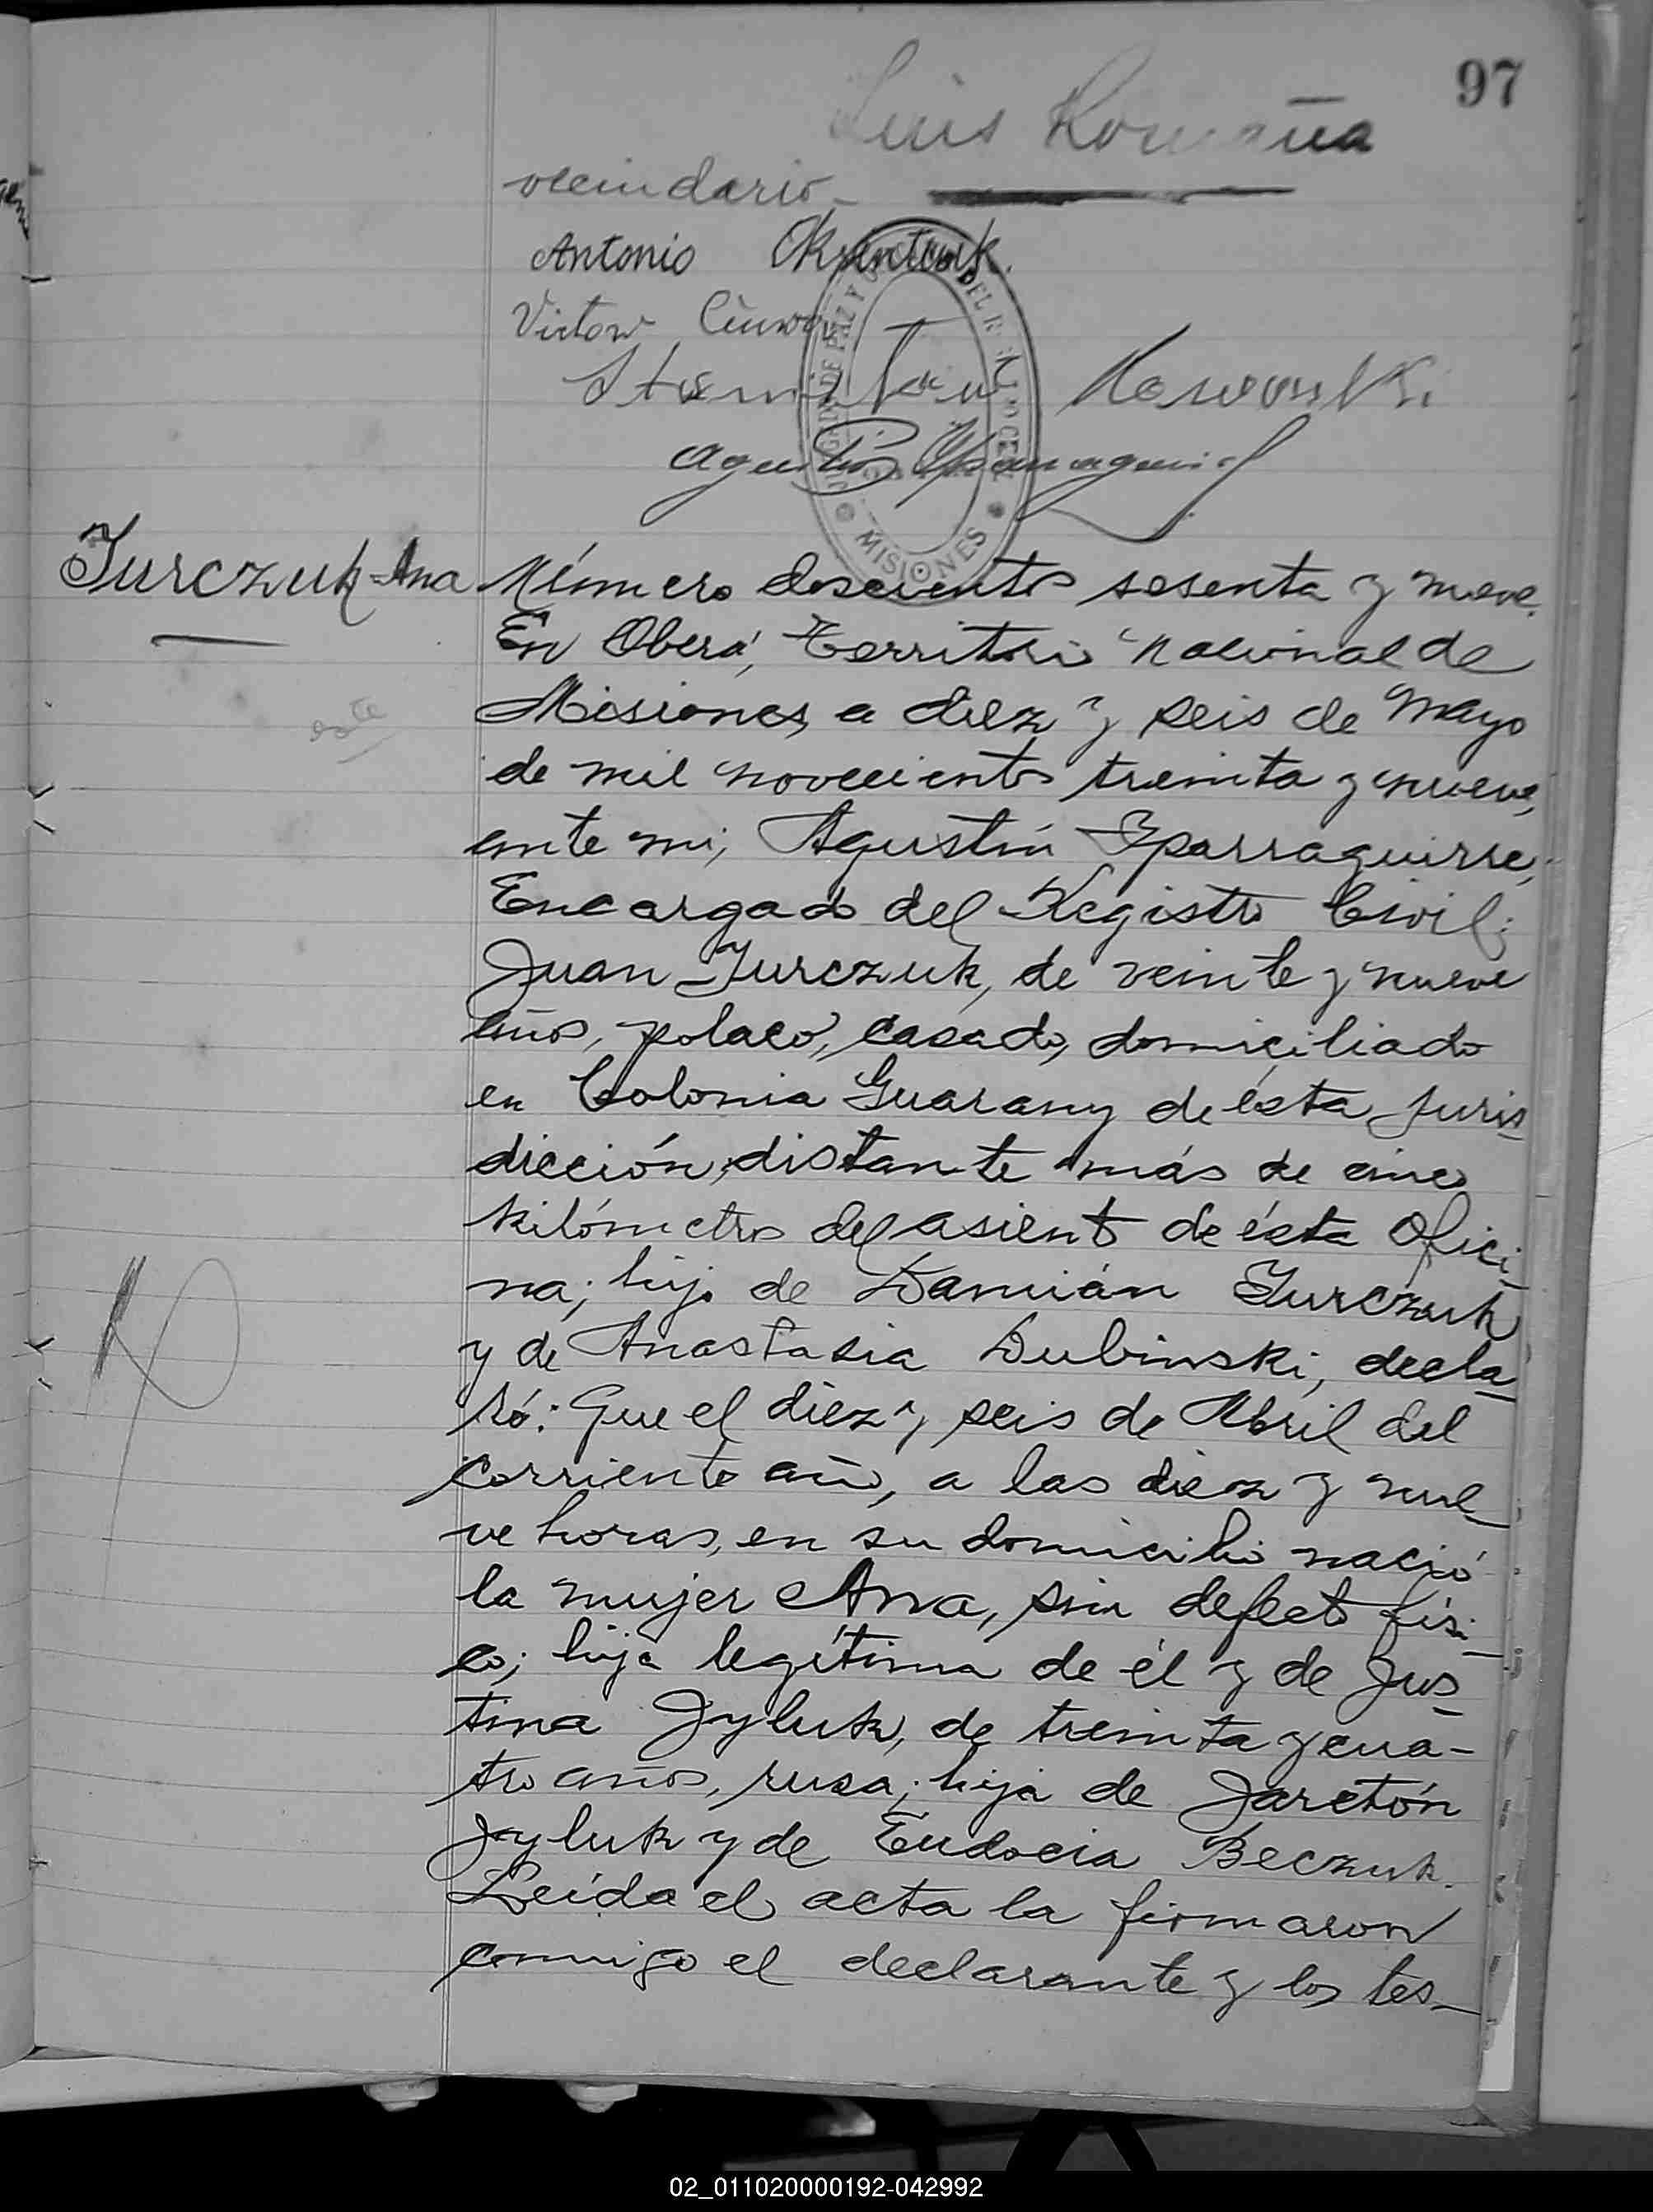 97
Luis Romaña
vecindario_
Antonio
Victor
JUZGADO DE PAZ Y DEL R CIVIL
MISIONES
Yurczuk Ana
Número doscientos sesenta y nueve.
En Oberá, Territorio Nacional de
Misiones, a diez y seis de Mayo
de mil novecientos treinta y nueve,
ante mi, Agustín Yparraguirre,
Encargado del Registro Civil;
Juan Yurczuk, de veinte y nueve
años, polaco, casado, domiciliado
en Colonia Guarany de ésta juris_
dicción, distante más de cinco
kilómetros del asiento de ésta Ofici_
na; hijo de Damián Yurczuk
y de Anastasia Dubinski, decla_
ró: Que el diez y seis de Abril del
corriente año, a las diez y nue_
ve horas, en su domicilio nació
la mujer Ana, sin defecto físi_
co; hija legítima de él y de Jus_
tina Jyluk, de treinta y cua-
tro años, rusa; hija de Jaretón
Jyluk y de Eudocia Beczuk.
Leída el acta la firmaron
conmigo el declarante y los tes_
este
02_011020000192-042992